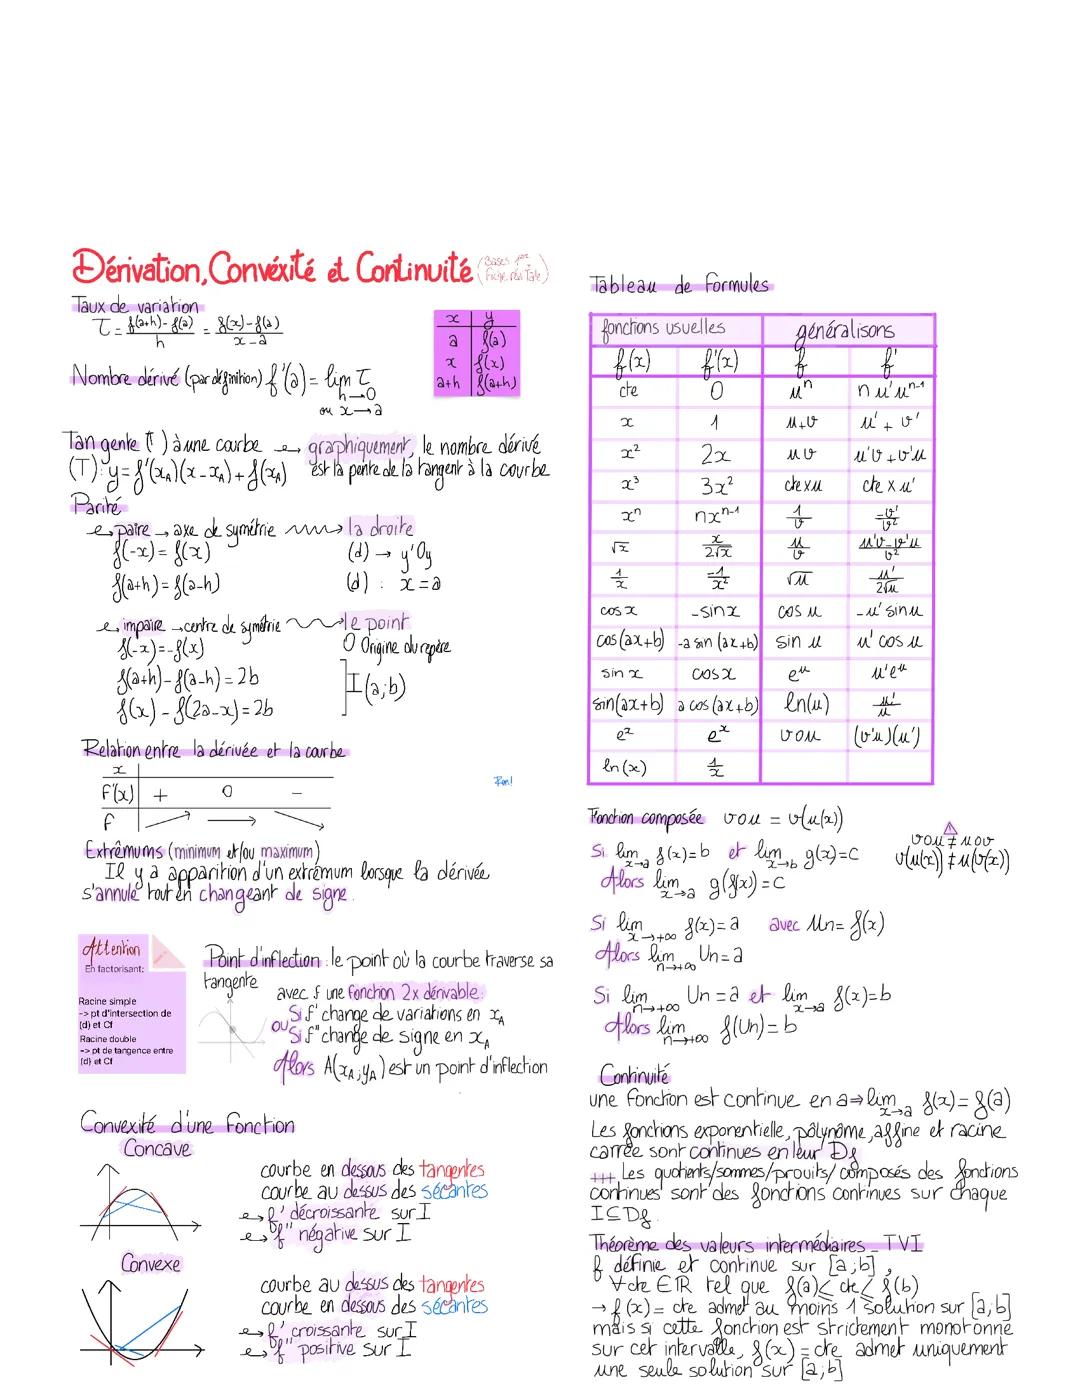 Dérivation, Convéxité et Continuité
(Bases pour
Fiche rév Tale)
Taux de variation
τ = f(a+h)-f(a)/h = f(x)-f(a)/x-a
x | y
a | f(a)
x | f(x)
a+h | f(a+h)
Nombre dérivé (par définition) f'(a) = lim τ
h→0
ou x→a
Tangente (T) à une courbe → graphiquement, le nombre dérivé
(T): y = f'(xA)(x-xA)+f(xA) est la pente de la tangent à la courbe
Parité
paire → axe de symétrie → la droite
f(-x) = f(x) (d) → y'Oy
f(a+h) = f(a-h) (d) : x = a
impaire → centre de symétrie → le point
f(-x) = -f(x) O Origine du repère
f(a+h) - f(a-h) = 2b
I(a;b)
f(x) - f(2a-x) = 2b
Relation entre la dérivée et la courbe
x
f'(x) | + 0 -
f
Ron!
Extrêmums (minimum et/ou maximum)
Il y a apparition d'un extrêmum lorsque la dérivée
s'annule tout en changeant de signe.
Attention
En factorisant:
Racine simple
-> pt d'intersection de
(d) et Cf
Racine double
-> pt de tangence entre
(d) et Cf
Point d'inflection : le point où la courbe traverse sa
tangente
avec f une fonction 2x dérivable:
Si f' change de variations en xA
ou Si f" change de signe en xA
Alors A(xA;yA) est un point d'inflection
Convexité d'une fonction
Concave
courbe en dessous des tangentes
courbe au dessus des sécantes
f' décroissante sur I
f" négative sur I
Convexe
courbe au dessus des tangentes
courbe en dessous des sécantes
f' croissante sur I
f" positive sur I
Tableau de formules
fonctions usuelles | généralisons
f(x) | f'(x) | f | f'
cte | 0 | u^n | n u'u^n-1
x | 1 | u+v | u' + v'
x² | 2x | u v | u'v + v'u
x³ | 3x² | cte x u | cte x u'
x^n | nx^n-1 | 1/v | -v'/v²
√x | x/2√x | u/v | u'v-v'u/v²
1/x | -1/x² | √u | u'/2√u
cos x | -sin x | cos u | -u' sin u
cos(ax+b) | -a sin(ax+b) | sin u | u' cos u
sin x | cos x | e^u | u'e^u
sin(ax+b) | a cos(ax+b) | ln(u) | u'/u
e^x | e^x | v o u | (v'u)(u')
ln(x) | 1/x
Fonction composée v o u = v(u(x))
v o u ≠ u o v
v(u(x)) ≠ u(v(x))
Si lim x→a f(x) = b et lim x→b g(x) = c
Alors lim x→a g(f(x)) = c
Si lim x→+∞ f(x) = a avec Un = f(x)
Alors lim n→+∞ Un = a
Si lim n→+∞ Un = a et lim x→a f(x) = b
Alors lim n→+∞ f(Un) = b
Continuité
une fonction est continue en a ⇒ lim x→a f(x) = f(a)
Les fonctions exponentielle, polynôme, affine et racine
carrée sont continues en leur Df
+++ Les quotients/sommes/prouits/composés des fonctions
continues sont des fonctions continues sur chaque
I⊆Df.
Théorème des valeurs intermédiaires - TVI
f définie et continue sur [a;b],
∀cte ∈ℝ tel que f(a)≤ cte ≤ f(b)
→ f(x) = cte admet au moins 1 solution sur [a;b]
mais si cette fonction est strictement monotonne
sur cet intervalle, f(x) = cte admet uniquement
une seule solution sur [a;b]